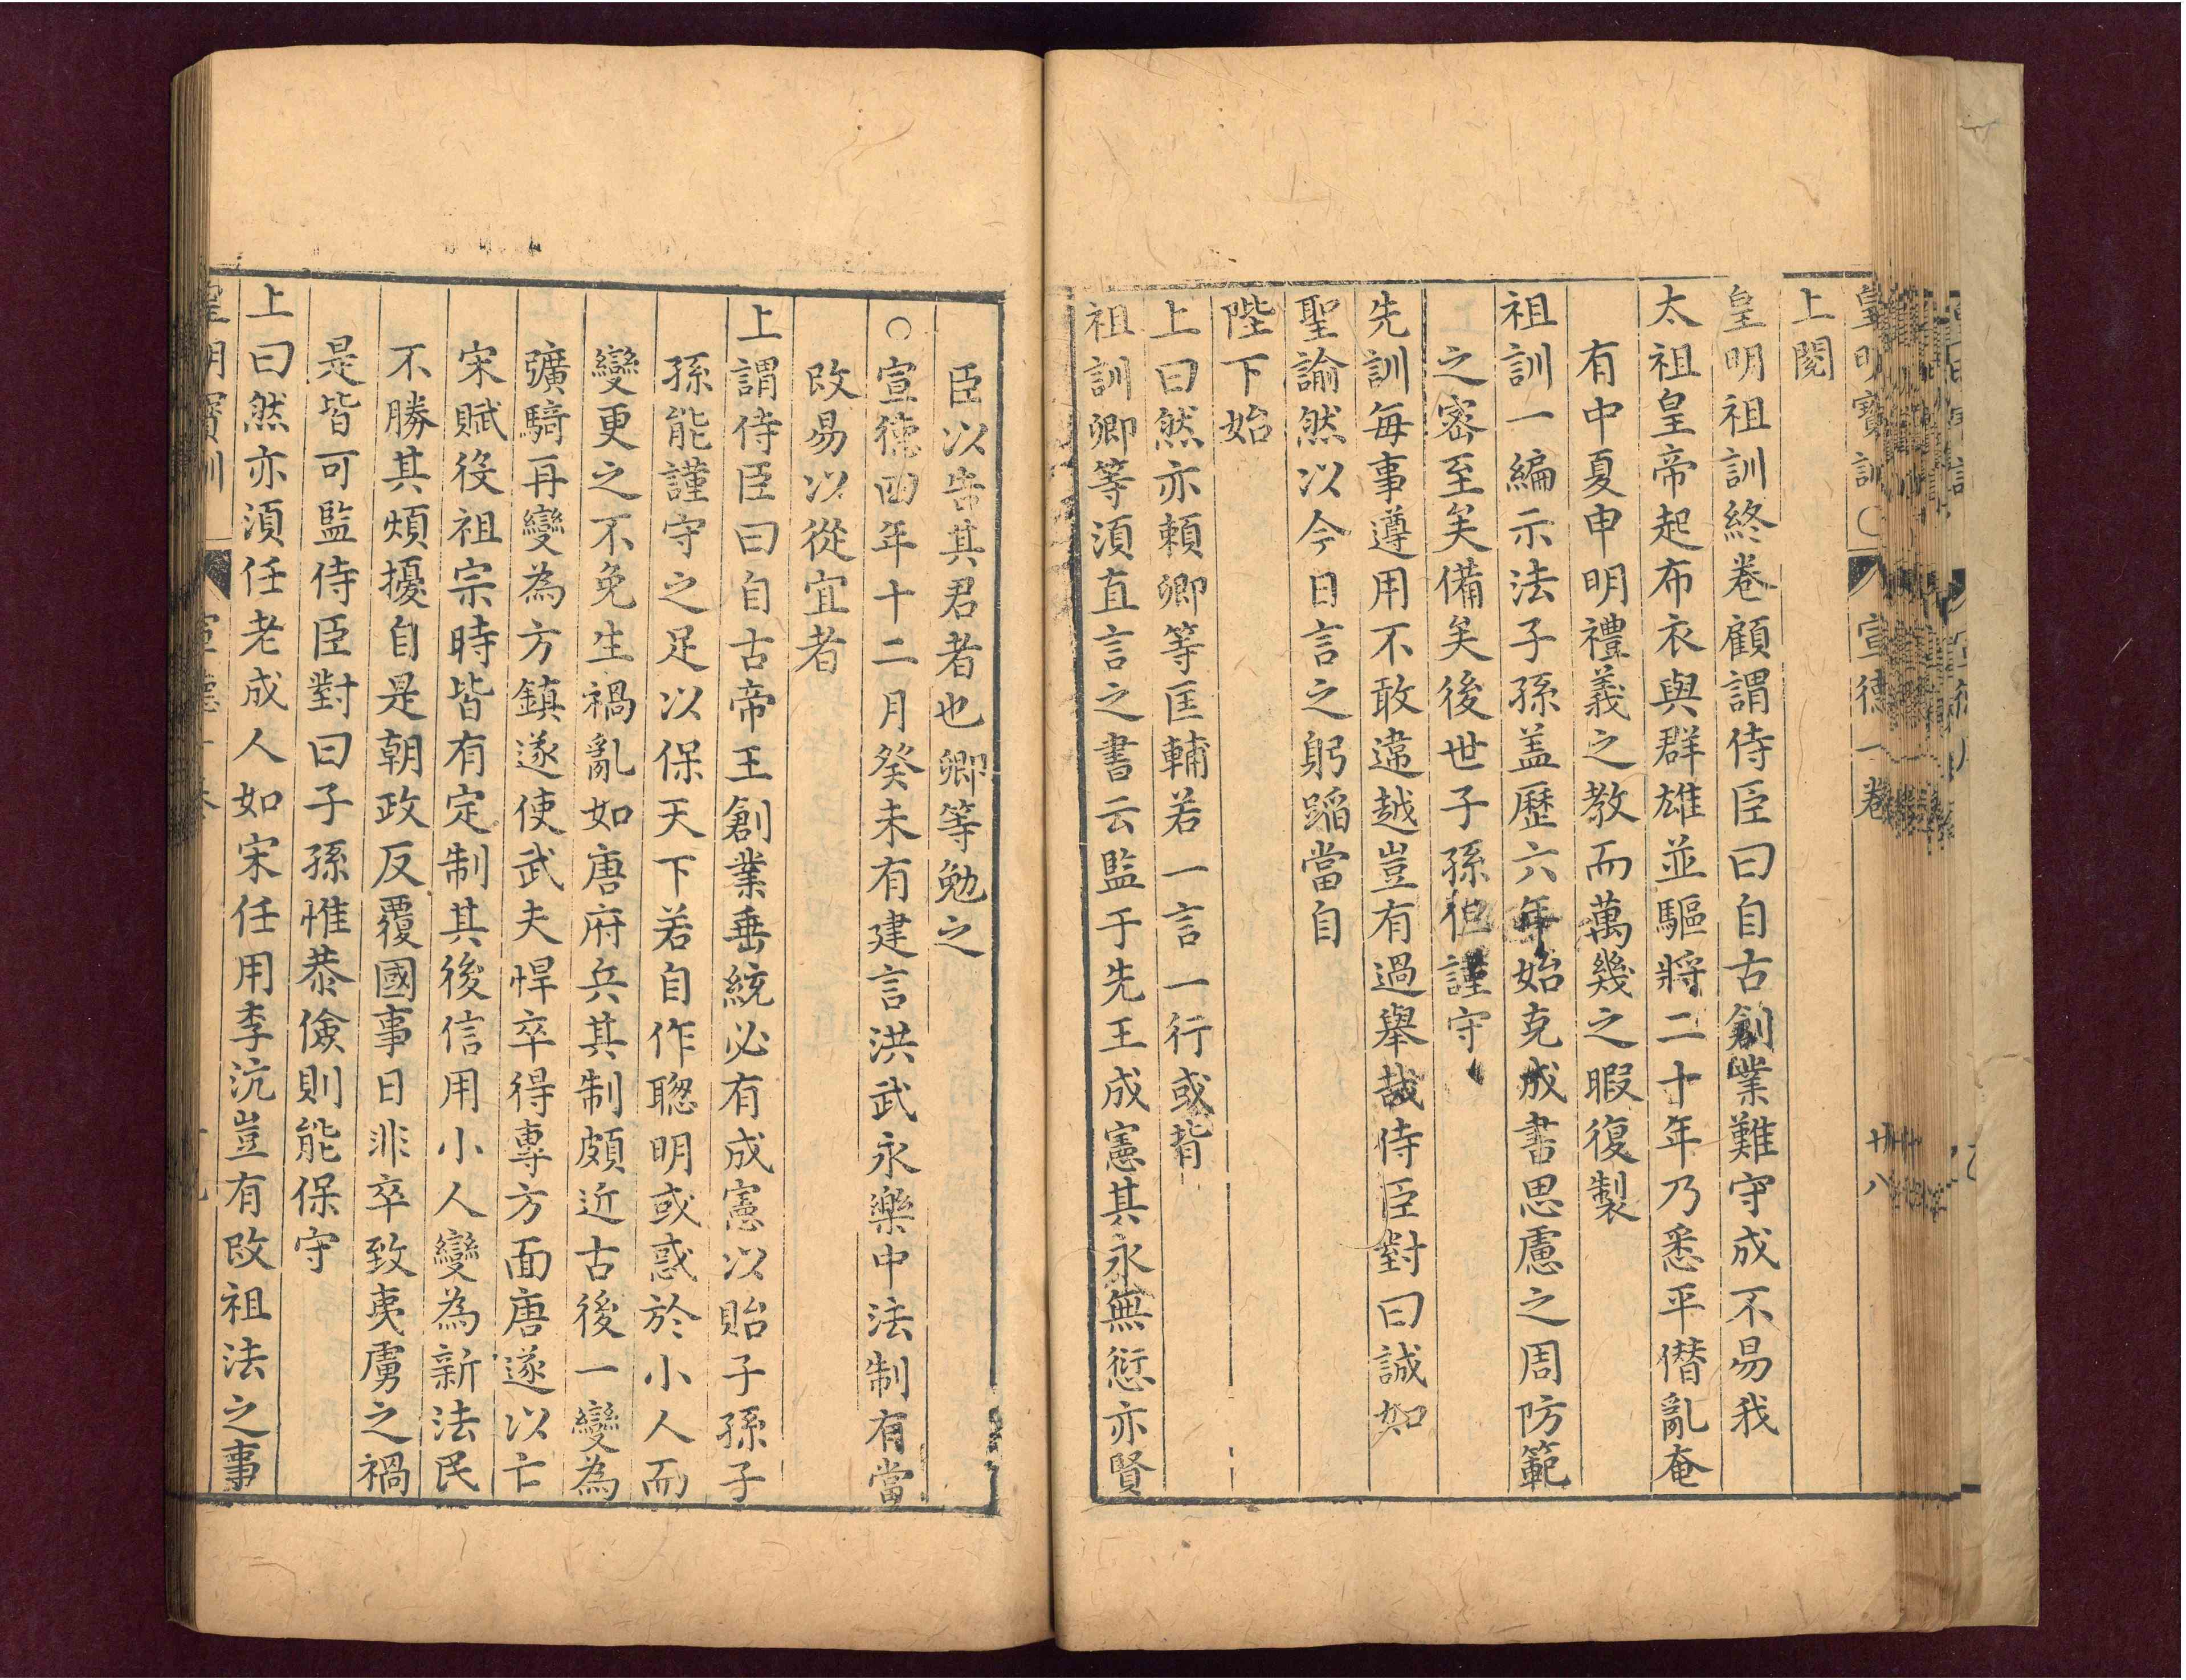 皇明寶訓〇 宣德一卷 廿八
上閱
皇明祖訓終卷顧謂侍臣曰自古創業難守成不易我
太祖皇帝起布衣與群雄並驅將二十年乃悉平僭亂奄
有中夏申明禮義之教而萬幾之暇復製
祖訓一編示法子孫盖歷六年始克成書思慮之周防範
之密至矣備矣後世子孫但謹守
先訓每事遵用不敢違越豈有過舉哉侍臣對曰誠如
聖諭然以今日言之躬蹈當自
陛下始
上曰然亦賴卿等匡輔若一言一行或背
祖訓卿等須直言之書云監于先王成憲其永無愆亦賢
臣以告其君者也卿等勉之
○宣德四年十二月癸未有建言洪武永樂中法制有當
改易以從宜者
上謂侍臣曰自古帝王創業垂統必有成憲以貽子孫子
孫能謹守之足以保天下若自作聦明或惑於小人而
變更之不免生禍亂如唐府兵其制頗近古後一變為
彍騎再變為方鎮遂使武夫悍卒得專方面唐遂以亡
宋賦役祖宗時皆有定制其後信用小人變為新法民
不勝其煩擾自是朝政反覆國事日非卒致夷虜之禍
是皆可監侍臣對曰子孫惟恭儉則能保守
上曰然亦須任老成人如宋任用李沆豈有改祖法之事